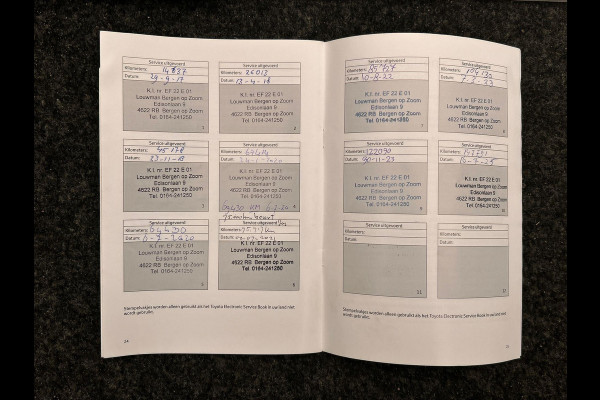 Service uitgevoerd
Kilometers: 14837
Datum: 29-9-17
K.I. nr. EF 22 E 01
Louwman Bergen op Zoom
Edisonlaan 9
4622 RB Bergen op Zoom
Tel. 0164-241250
1
Service uitgevoerd
Kilometers: 26018
Datum: 13-4-18
K.I. nr. EF 22 E 01
Louwman Bergen op Zoom
Edisonlaan 9
4622 RB Bergen op Zoom
Tel. 0164-241250
2
Service uitgevoerd
Kilometers: 45178
Datum: 23-11-18
K.I. nr. EF 22 E 01
Louwman Bergen op Zoom
Edisonlaan 9
4622 RB Bergen op Zoom
Tel. 0164-241250
3
Service uitgevoerd
Kilometers:
Datum:
K.I. nr. EF 22 E 01
Louwman Bergen op Zoom
Edisonlaan 9
4622 RB Bergen op Zoom
Tel. 0164-241250
4
Service uitgevoerd
Kilometers:
Datum:
K.I. nr. EF 22 E 01
Louwman Bergen op Zoom
Edisonlaan 9
4622 RB Bergen op Zoom
Tel. 0164-241250
5
Kilometers:
Datum:
K.I. nr. EF 22 E 01
Louwman Bergen op Zoom
Edisonlaan 9
4622 RB Bergen op Zoom
Tel. 0164-241250
6
Stempelvakjes worden alleen gebruikt als het Toyota Electronic Service Book in uw land niet
wordt gebruikt.
24
Service uitgevoerd
Kilometers:
Datum: 10-8-22
K.I. nr. EF 22 E 01
Louwman Bergen op Zoom
Edisonlaan 9
4622 RB Bergen op Zoom
Tel. 0164-241250
7
Service uitgevoerd
Kilometers: 104130
Datum:
K.I. nr. EF 22 E 01
Louwman Bergen op Zoom
Edisonlaan 9
4622 RB Bergen op Zoom
Tel. 0164-241250
8
Service uitgevoerd
Kilometers: 122090
Datum: 30-11-23
K.I. nr. EF 22 E 01
Louwman Bergen op Zoom
Edisonlaan 9
4622 RB Bergen op Zoom
Tel. 0164-241250
9
Service uitgevoerd
Kilometers:
Datum:
K.I. nr. EF 22 E 01
Louwman Bergen op Zoom
Edisonlaan 9
4622 RB Bergen op Zoom
Tel. 0164-241250
10
Service uitgevoerd
Kilometers:
Datum:
11
Service uitgevoerd
Kilometers:
Datum:
12
Stempelvakjes worden alleen gebruikt als het Toyota Electronic Service Book in uw land niet
wordt gebruikt.